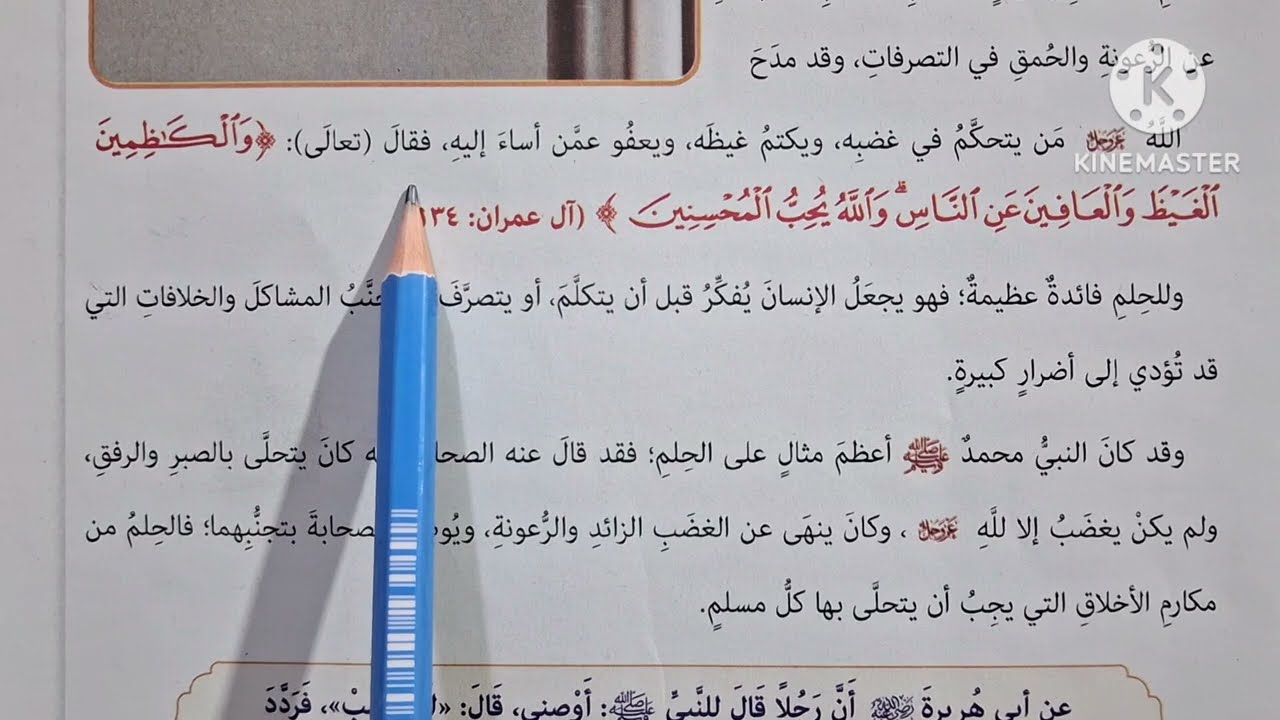 عن الرُّعونةِ والحُمقِ في التصرفاتِ، وقد مدَحَ
K
KINEMASTER
اللَّهُ عزوجل مَن يتحكَّمُ في غضبِه، ويكتمُ غيظَه، ويعفُو عمَّن أساءَ إليهِ، فقالَ (تعالَى): ﴿وَٱلْكَٰظِمِينَ
ٱلْغَيْظَ وَٱلْعَافِينَ عَنِ ٱلنَّاسِ ۗ وَٱللَّهُ يُحِبُّ ٱلْمُحْسِنِينَ ﴾ (آل عمران: ١٣٤
وللحِلمِ فائدةٌ عظيمةٌ؛ فهو يجعَلُ الإنسانَ يُفكِّرُ قبل أن يتكلَّمَ، أو يتصرَّفَ المشاكلَ والخلافاتِ التي
قد تُؤدي إلى أضرارٍ كبيرةٍ.
وقد كانَ النبيُّ محمدٌ ﷺ أعظمَ مثالٍ على الحِلمِ؛ فقد قالَ عنه كانَ يتحلَّى بالصبرِ والرفقِ،
ولم يكنْ يغضَبُ إلا للَّهِ عزوجل ، وكانَ ينهَى عن الغضَبِ الزائدِ والرُّعونةِ، بتجنُّبِهما؛ فالحِلمُ من
مكارمِ الأخلاقِ التي يجِبُ أن يتحلَّى بها كلُّ مسلمٍ.
عن أبي هُريرةَ رضي الله عنه أَنَّ رَجُلًا قَالَ للنَّبيِّ ﷺ: أَوْصِني، قَالَ: فَرَدَّدَ